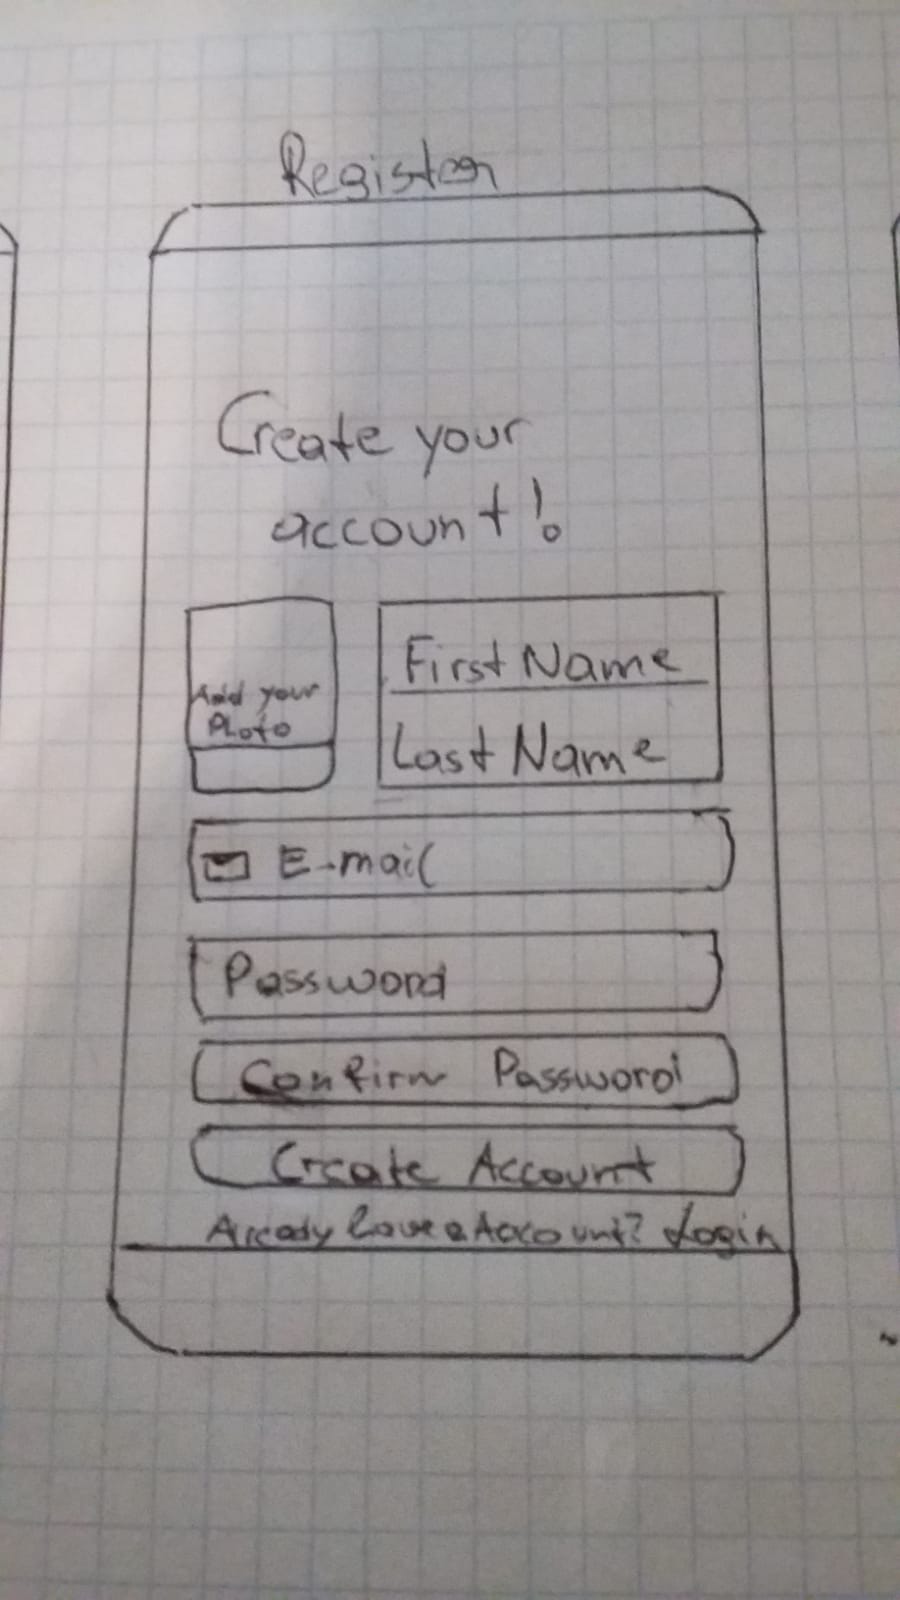 Register
Create your
account!
Add your
Photo
First Name
Last Name
E-mail
Password
Confirm Password
Create Account
Already have a Account? Login